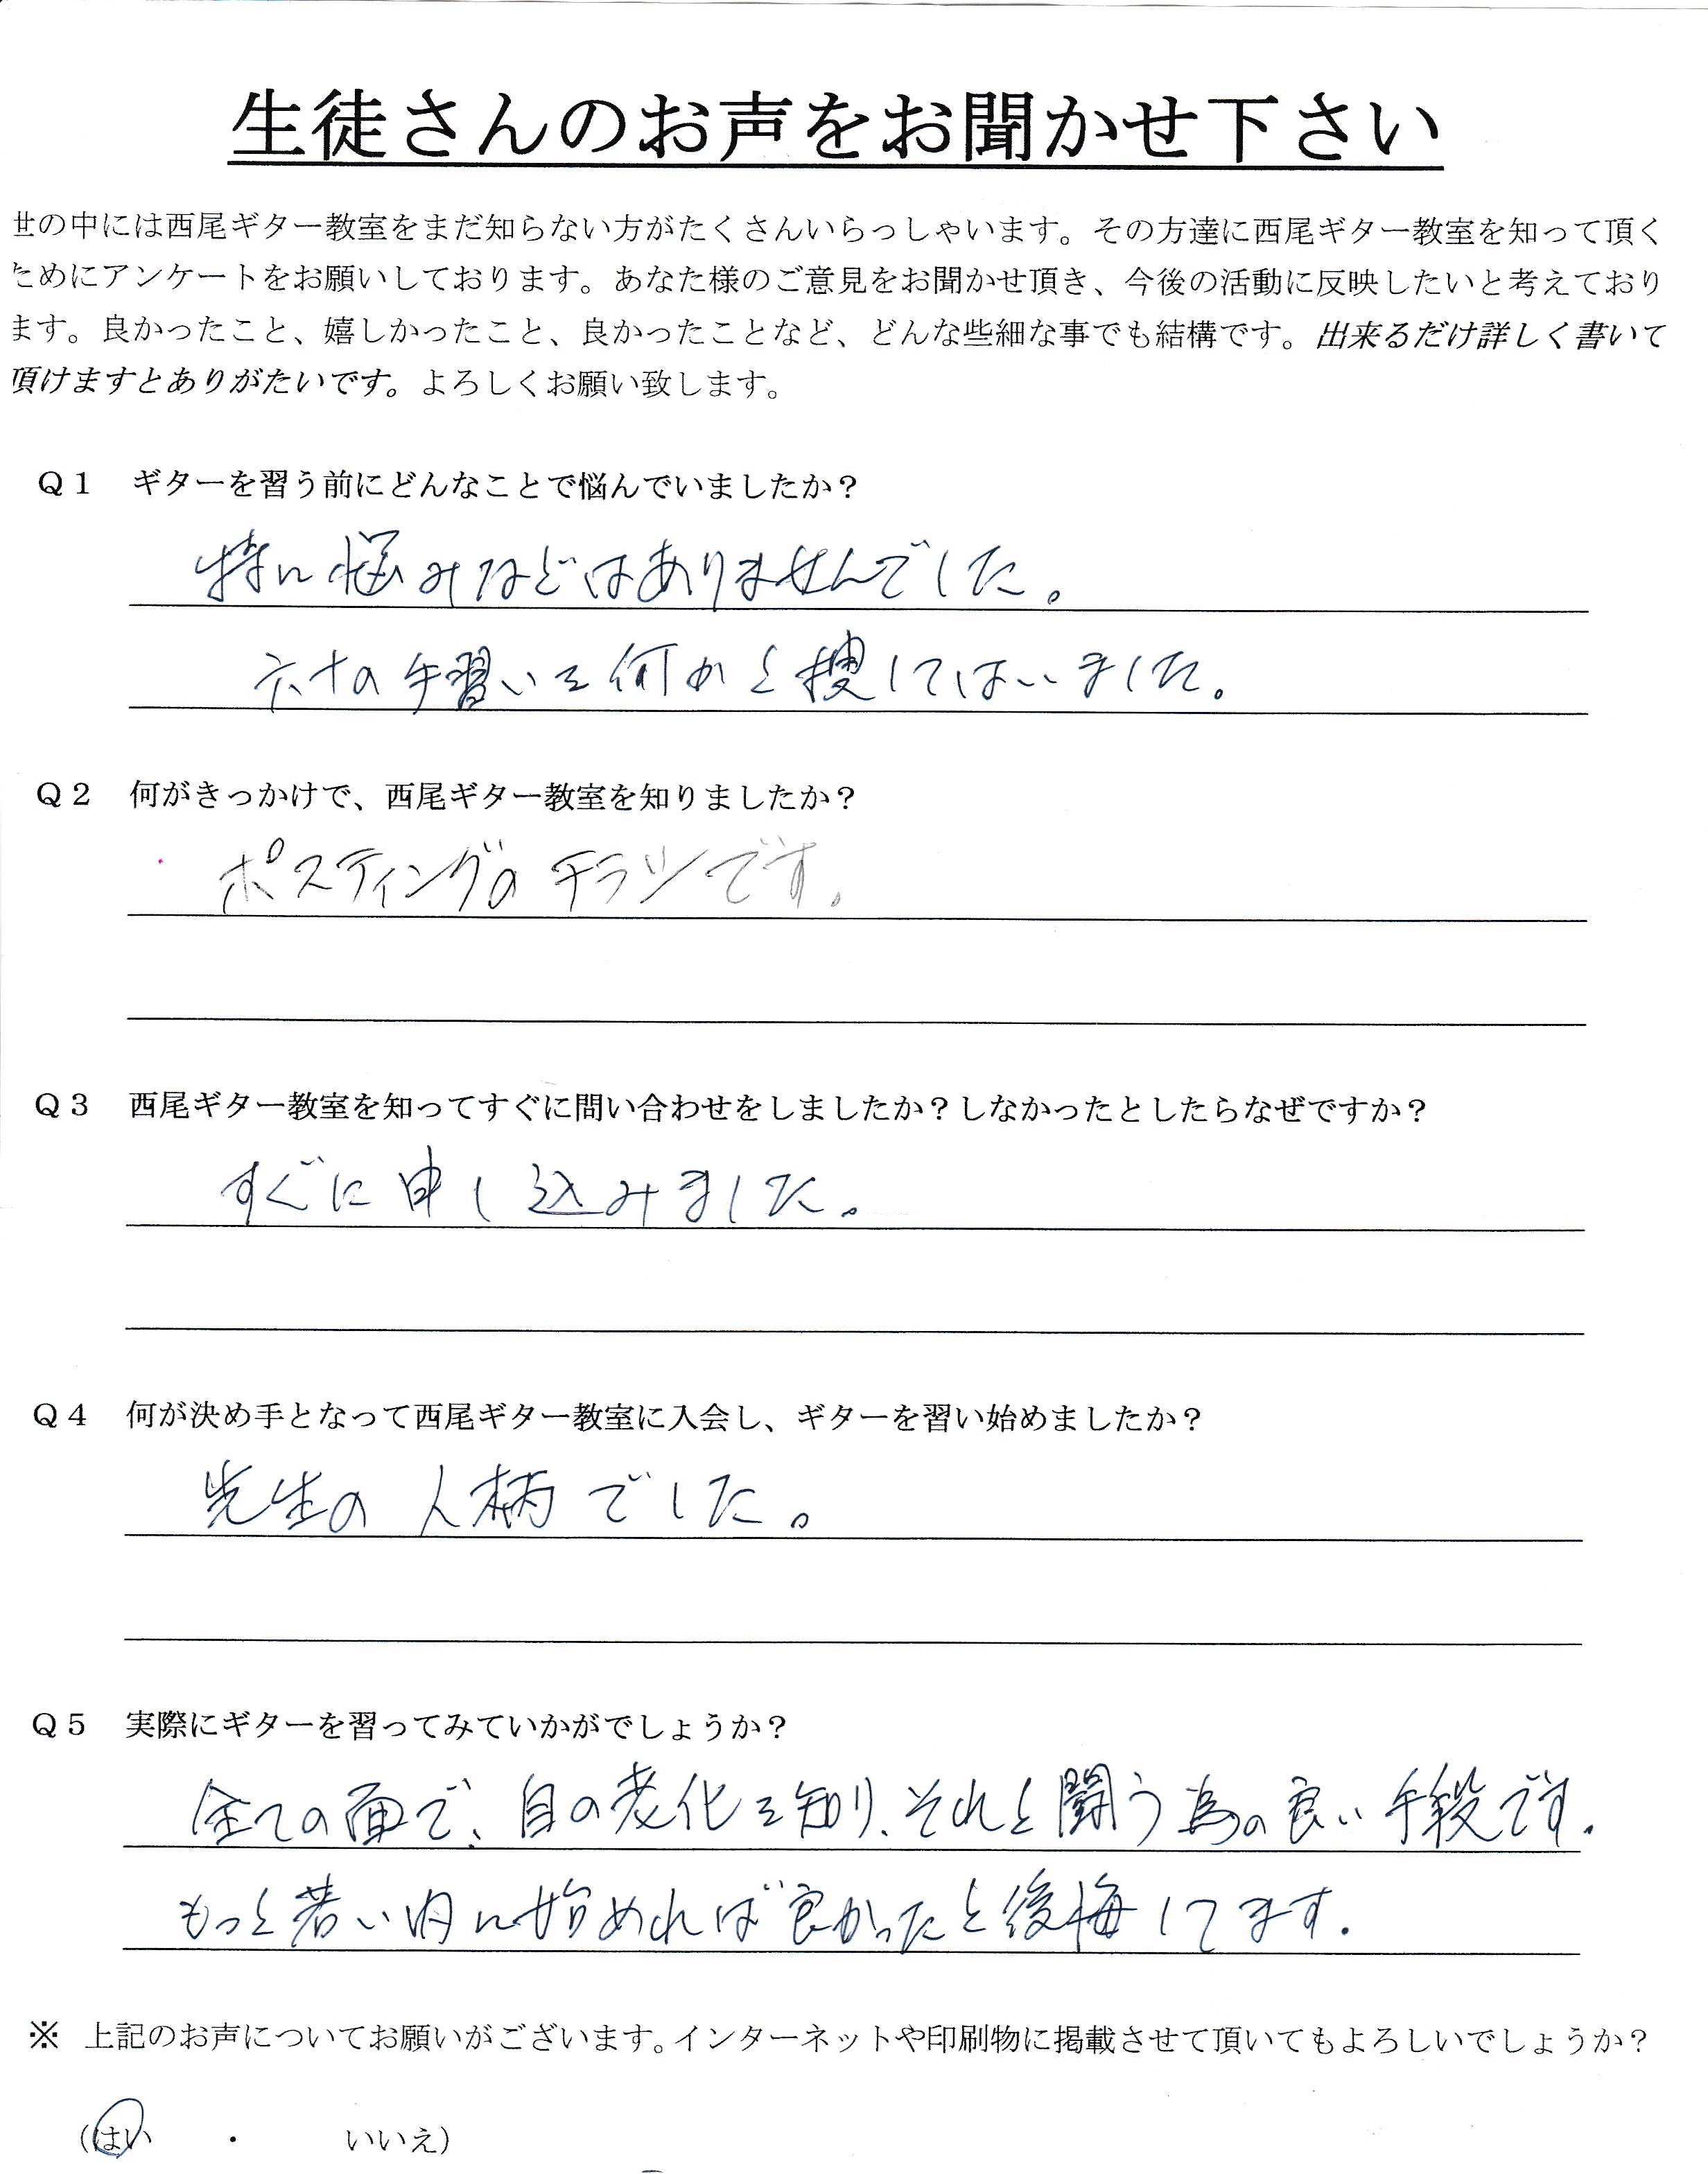 生徒さんのお声をお聞かせ下さい
世の中には西尾ギター教室をまだ知らない方がたくさんいらっしゃいます。その方達に西尾ギター教室を知って頂く
ためにアンケートをお願いしております。あなた様のご意見をお聞かせ頂き、今後の活動に反映したいと考えており
ます。良かったこと、嬉しかったこと、良かったことなど、どんな些細な事でも結構です。出来るだけ詳しく書いて
頂けますとありがたいです。よろしくお願い致します。
Q1 ギターを習う前にどんなことで悩んでいましたか？
特に悩みなどはありませんでした。
六十の手習いを何かと捜してはいました。
Q2 何がきっかけで、西尾ギター教室を知りましたか？
ポスティングのチラシです。
Q3 西尾ギター教室を知ってすぐに問い合わせをしましたか？しなかったとしたらなぜですか？
すぐに申し込みました。
Q4 何が決め手となって西尾ギター教室に入会し、ギターを習い始めましたか？
先生の人柄でした。
Q5 実際にギターを習ってみていかがでしょうか？
全ての面で、自の老化を知り、それと闘う為の良い手段です。
もっと若い内に始めれば良かったと後悔してます。
※ 上記のお声についてお願いがございます。インターネットや印刷物に掲載させて頂いてもよろしいでしょうか？
（はい ・ いいえ）